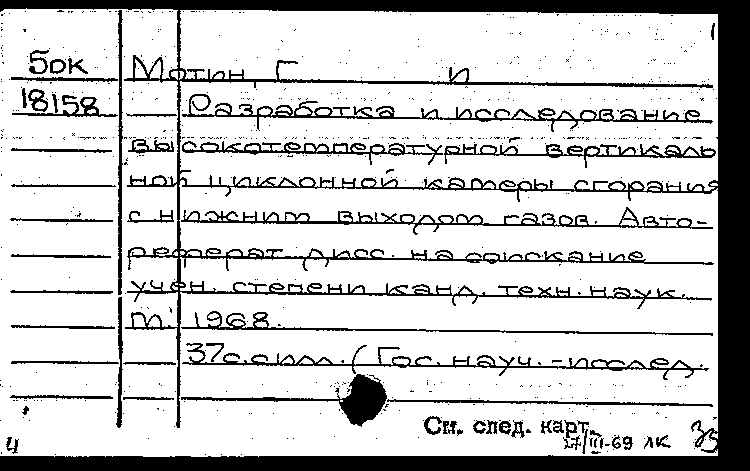 1
5ок Мотин, Г и
18158 Разработка и исследование
высокотемпературной вертикаль
ной циклонной камеры сгорания
с нижним выходом газов. Авто-
реферат дисс. на соискание
учен. степени канд. техн. наук.
М. 1968.
37с.силл. (Гос. науч.-исслед.
См. след. карт.
27/III-69 ЛК
4